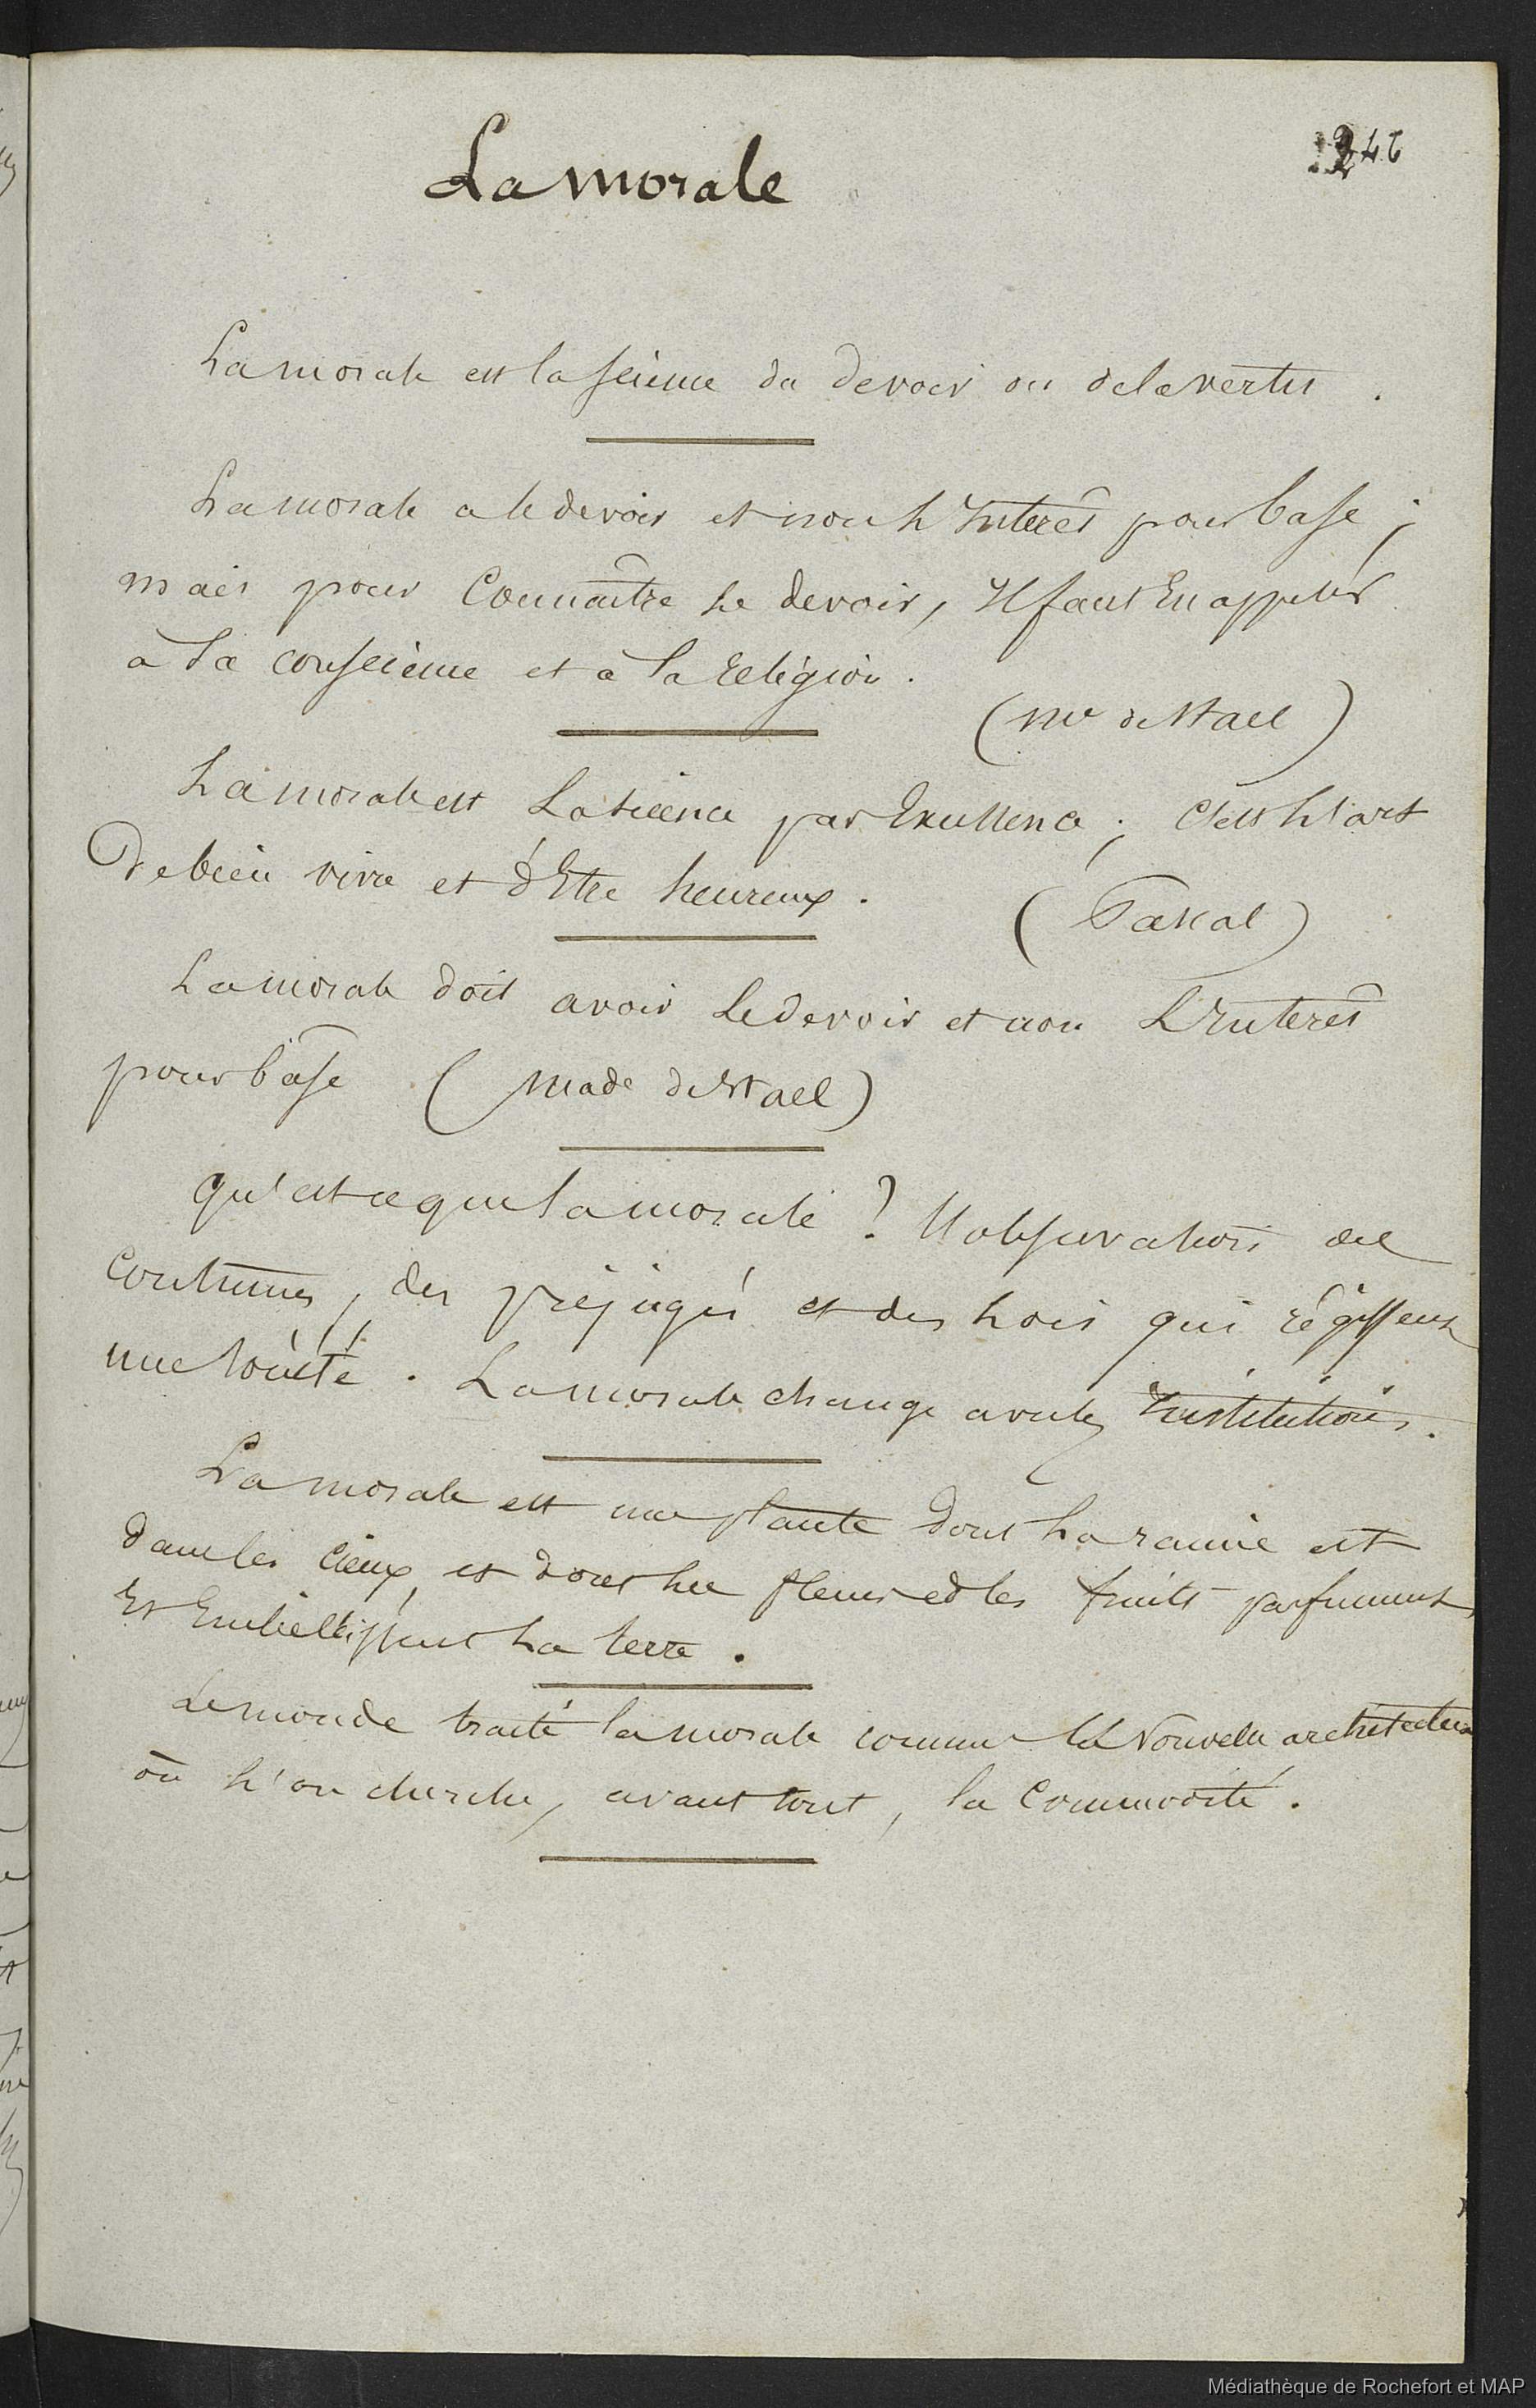 La morale
246
La morale est la science du devoir ou de la vertu.
La morale a le devoir et non l'Interêt pour base;
mais pour Connaître le devoir, Il faut En appeler
à la conscience et à la religion.
(Me de Stael)
La morale est La science par Excellence; c'est l'art
De bien vivre et d'Etre heureux.
(Pascal)
La morale doit avoir Le devoir et non L'Interêt
pour base (Made de Stael)
qu'est ce que la morale? l'observation des
Coutumes, des préjugés et des Lois qui régissent
une Société. La morale change avec les Institutions.
La morale est une plante dont La racine est
dans les cieux, et dont les fleurs et les fruits parfument
Et Embellissent La terre.
Le monde traite la morale comme la Nouvelle architecture
où l'on cherche, avant tout, la Commodité.
Médiathèque de Rochefort et MAP